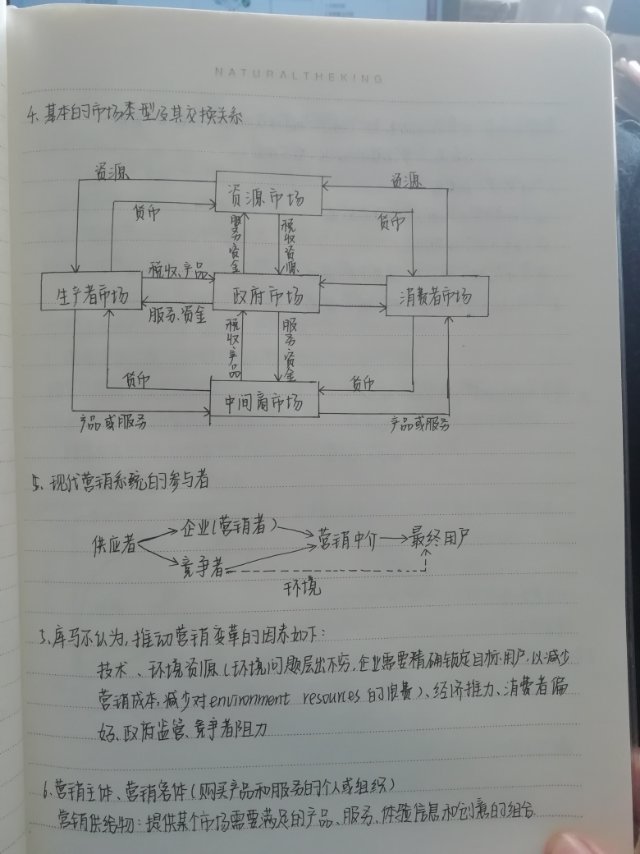 NATURALTHEKING
4. 基本的市场类型及其交换关系
资源
资源
资源市场
货币
货币
服务、资金
税收、资源
税收、产品
生产者市场
政府市场
消费者市场
服务、资金
税收、产品
服务、资金
货币
货币
中间商市场
产品或服务
产品或服务
5. 现代营销系统的参与者
企业(营销者)
供应者
营销中介
最终用户
竞争者
环境
5、库马尔认为,推动营销变革的因素如下:
技术、环境资源(环境问题层出不穷,企业需要精确锁定目标用户,以减少
营销成本,减少对environment resources的浪费)、经济推力、消费者偏
好、政府监管、竞争者阻力
6.营销主体、营销客体(购买产品和服务的个人或组织)
营销供给物:提供某个市场需要满足的产品、服务、体验信息和创意的组合.